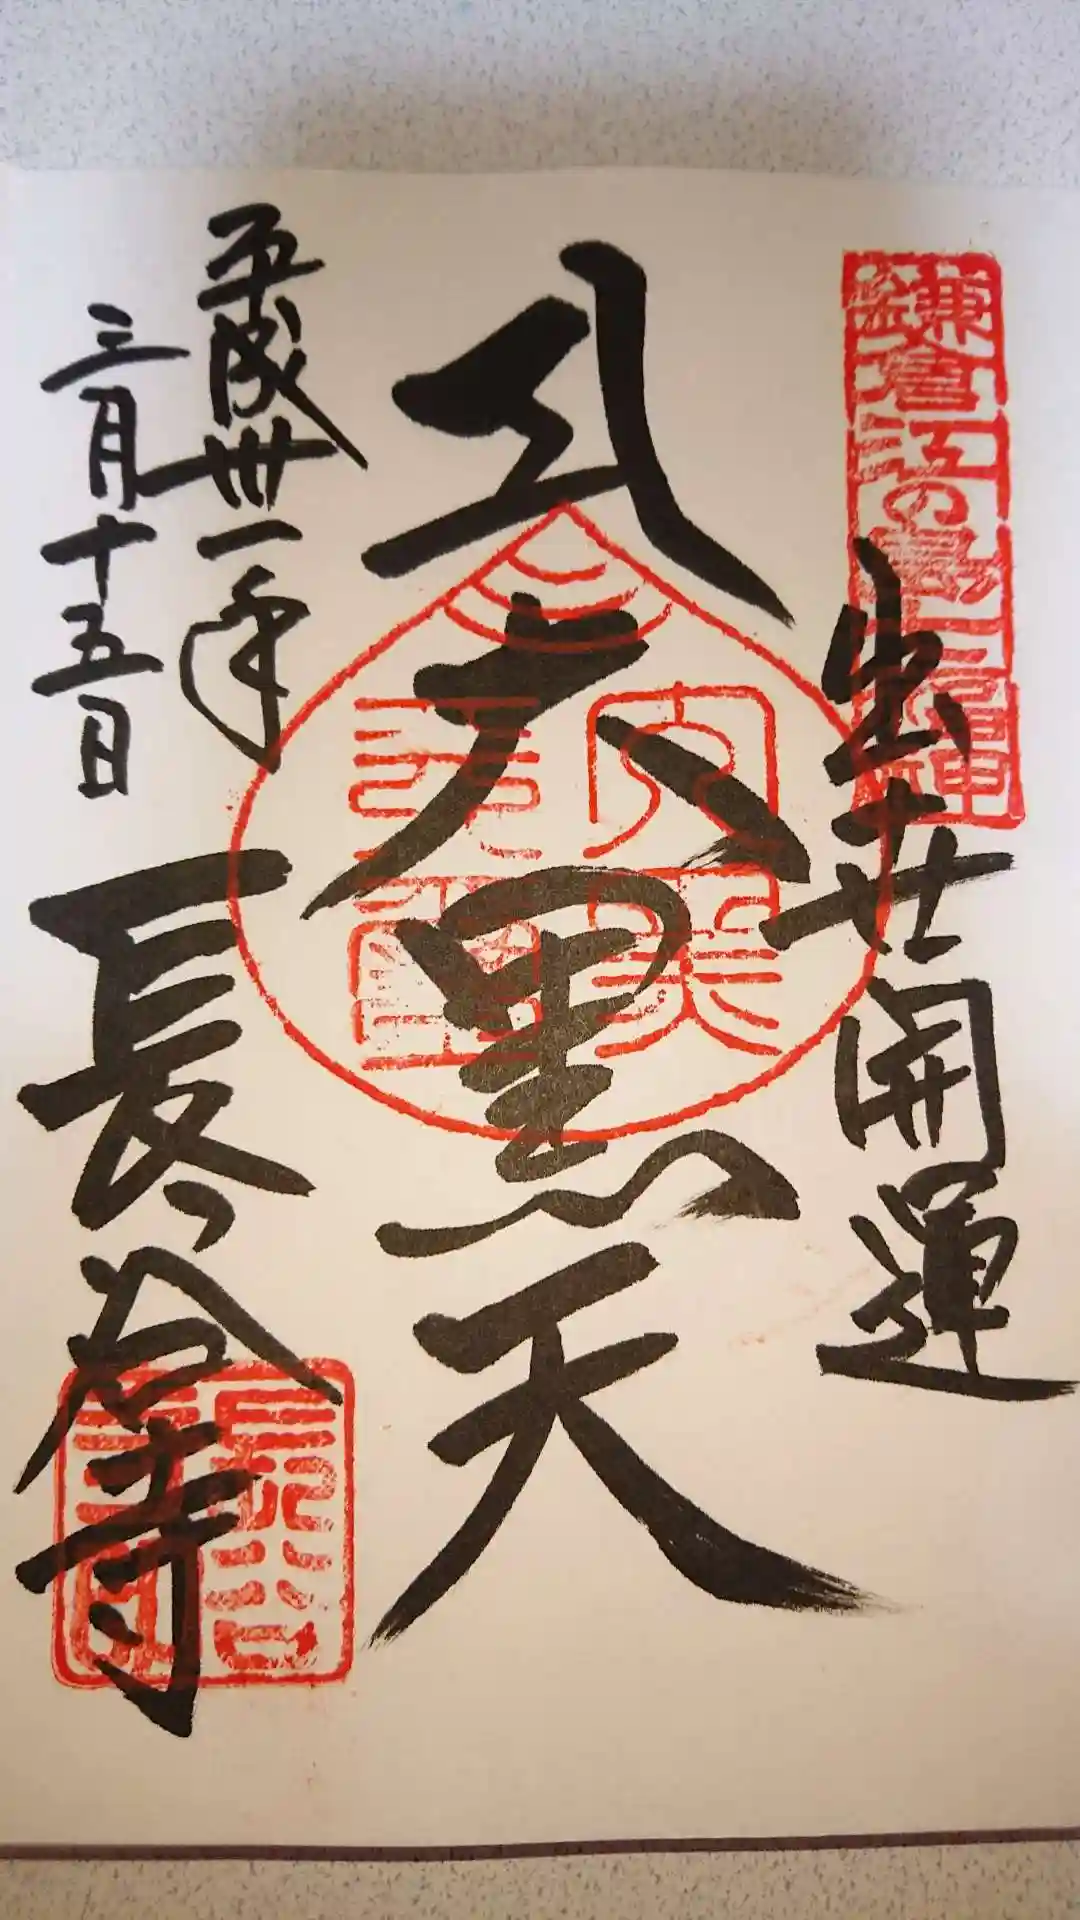 鎌倉江の島七福神
出世開運
大黒天
平成卅一年
三月十五日
長谷寺